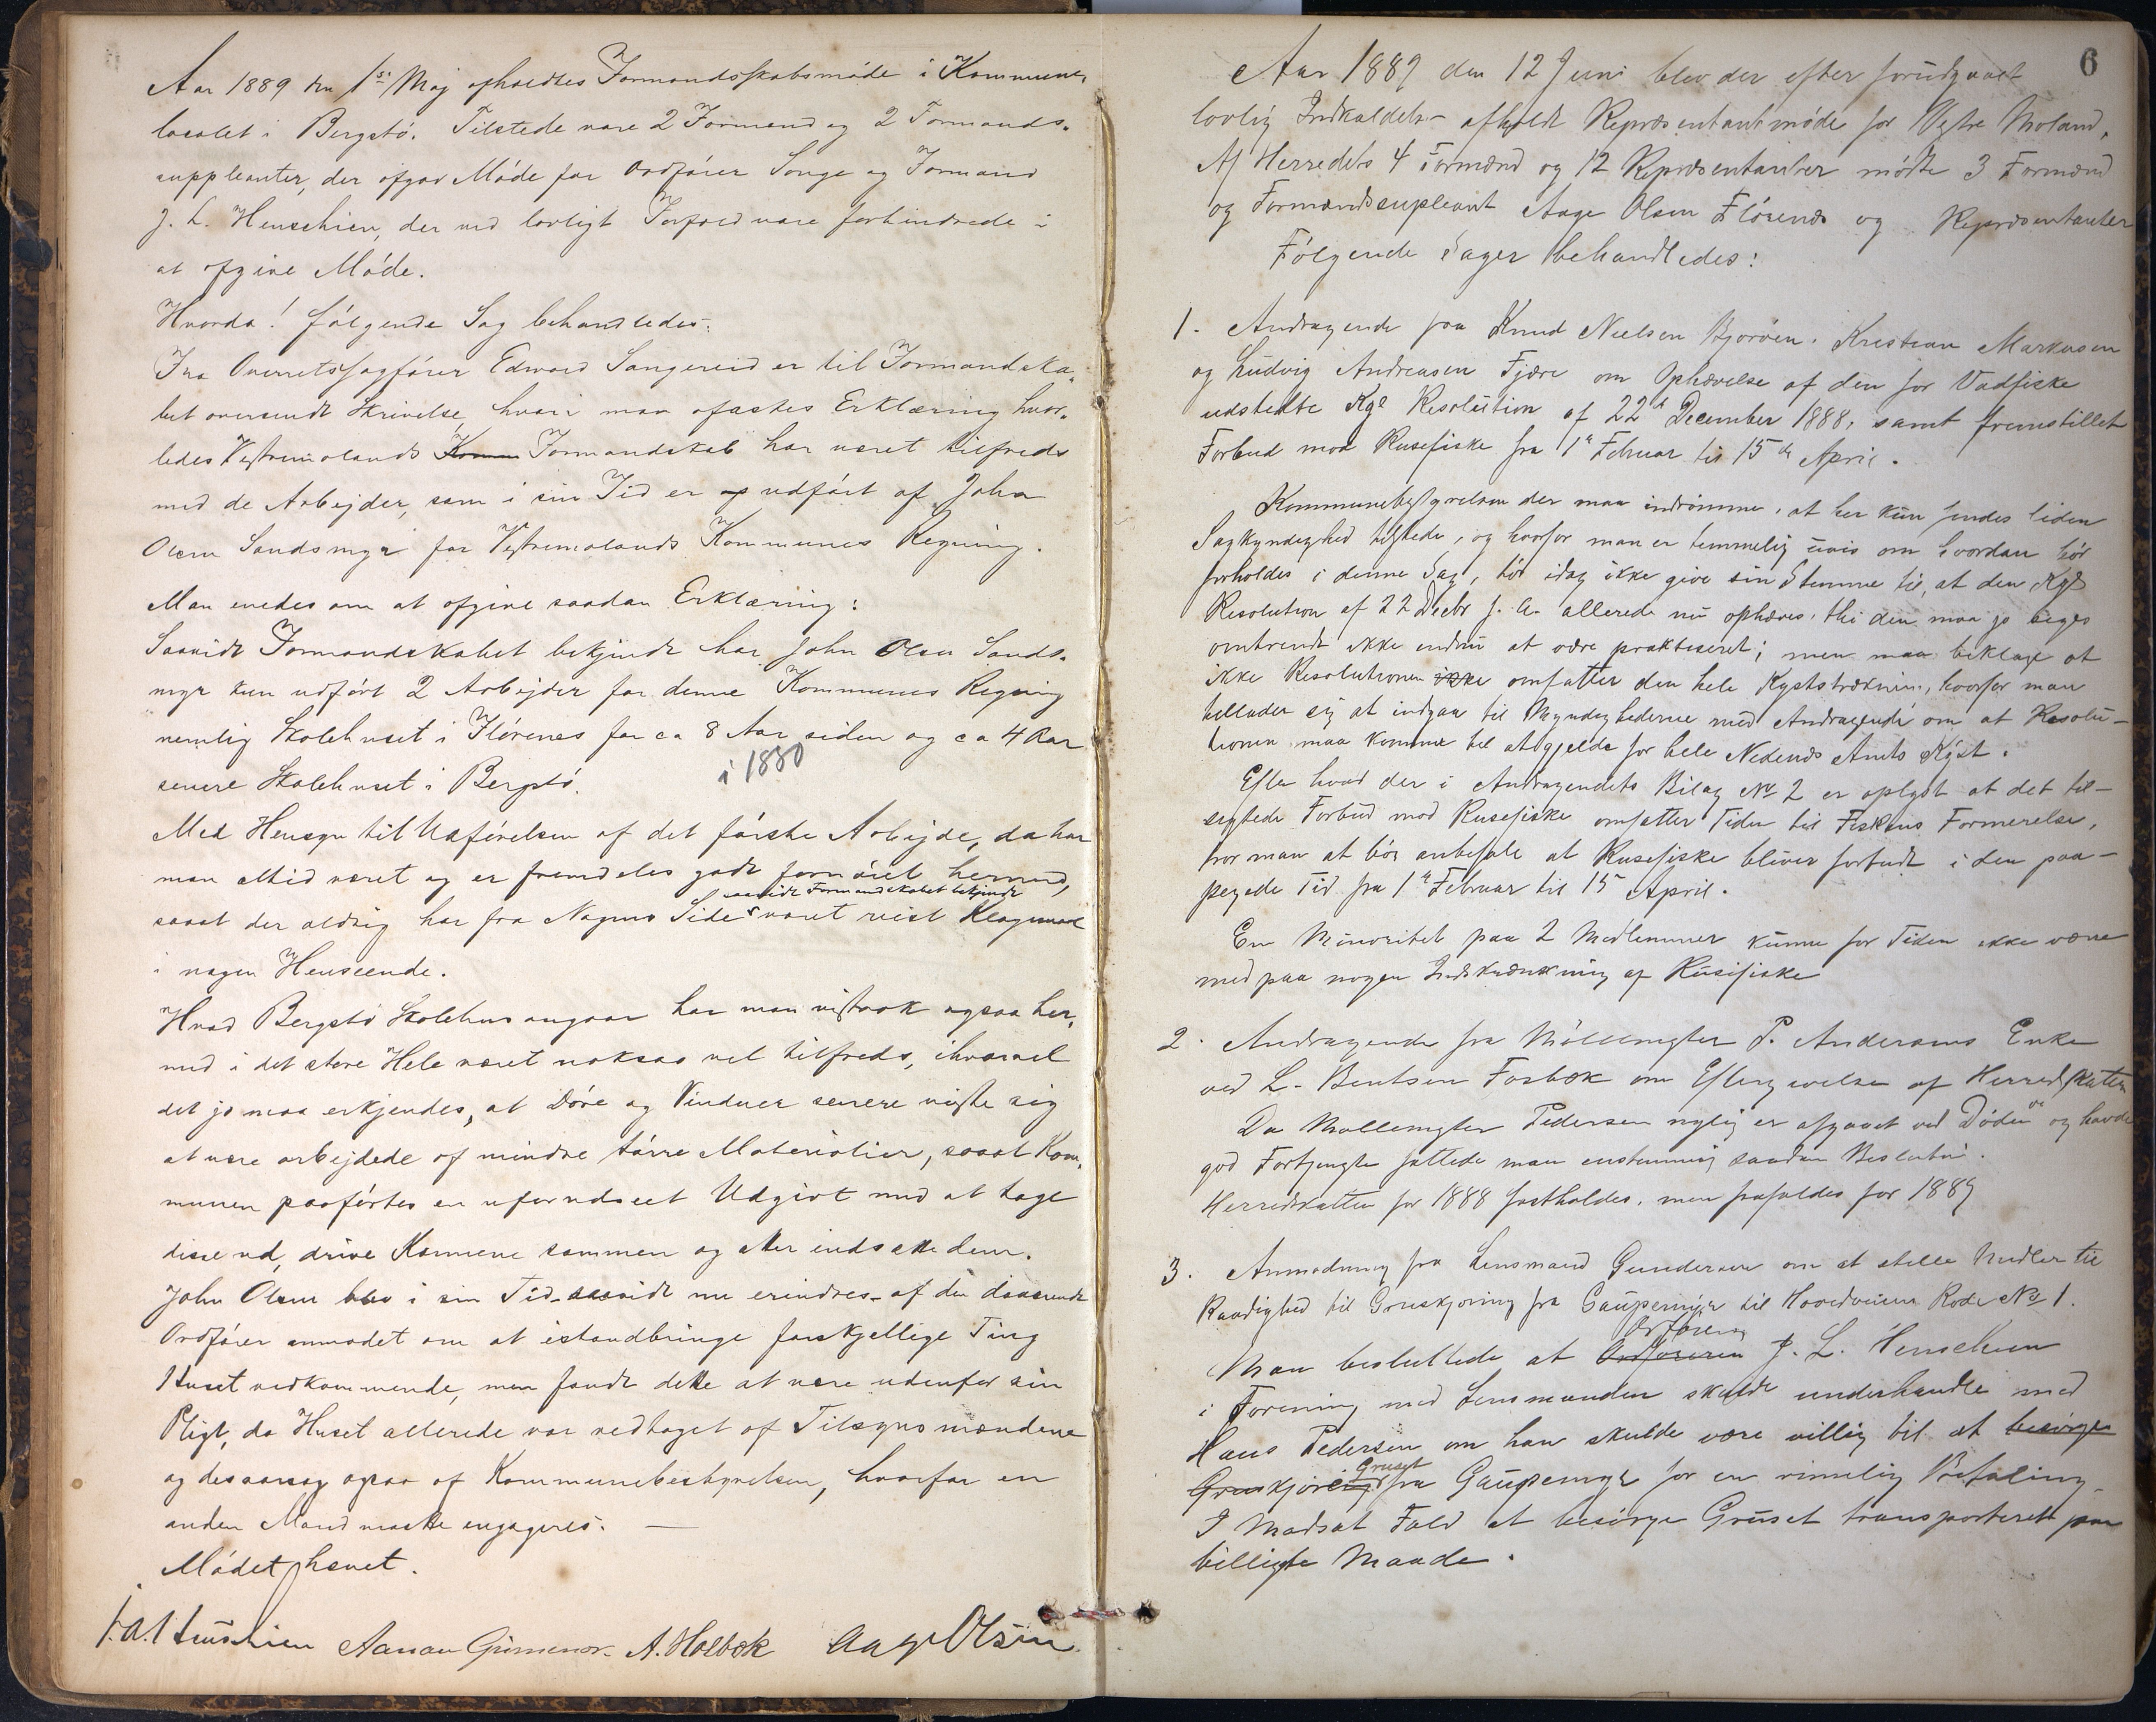 Aar 1889 den 1ste Maj afholdtes Formandskabsmøde i Kommune-
localet i Bergstø. Tilstede vare 2 Formænd og 2 Formands-
suppleanter, der afgav Møde for Ordfører Songe og Formand
J. L. Henschien, der ved lovligt Forfald vare forhindrede i
at afgive Møde.
Hvorda! følgende Sag behandledes:
Fra Overretssagfører Edward Sangereid er til Formandska-
bet oversendt Skrivelse, hvori man afæstes Erklæring hvor-
ledes Vestremolands Komm Formandskab har været tilfreds
med de Arbejder, som i sin Tid er udført af John
Olsen Sandsmyr for Vestremolands Kommunes Regning.
Man enedes om at afgive saadan Erklæring:
Saavidt Formandskabet bekjendt har John Olsen Sands-
myr kun udført 2 Arbejder for denne Kommunes Regning
nemlig Skolehuset i Flørenes for ca 8 Aar siden og ca 4 Aar
senere Skolehuset i Bergstø.
i 1880
Med Hensyn til Udførelsen af det første Arbejde, da har
man altid været og er fremdeles godt fornøiet hermed,
saavidt Formandskabet bekjendt
saaat der aldrig har fra Nogens Side været reist Klagemaal
i nogen Henseende.
Hvad Bergstø Skolehus angaar har man vistnok ogsaa her-
med i det store Hele været noksaa vel tilfreds, ihvorvel
det jo maa erkjendes, at Døre og Vinduer senere viste sig
at være arbejdede af mindre tørre Materialier, saaat Kom-
munen paaførtes en uforudseet Udgivt med at tage
disse ud, drive Karmene sammen og atter indsætte dem.
John Olsen blev i sin Tid - saavidt nu erindres - af den daværende
Ordfører anmodet om at istandbringe forskjellige Ting
Huset vedkommende, men fandt dette at være udenfor sin
Pligt, da Huset allerede var vedtaget af Tilsynsmændene
og desaarsag ogsaa af Kommunebestyrelsen, hvorfor en
anden Mand maatte engageres. —
Mødet hævet.
J. A. Henschien Aanon Gunnensen. A. Holbæk Aage Olsen
6
Aar 1889 den 12 Juni blev der efter forudgaaet
lovlig Indkaldelse afholdt Repræsentantmøde for Vestre Moland.
Af Herredets 4 Formænd og 12 Repræsentanter mødte 3 Formænd
og Formandssupleant Aage Olsen Flørenæs og Repræsentanter
Følgende Sager behandledes:
1. Andragende fra Knud Nielsen Bjorøen. Kristian Markusen
og Ludvig Andreasen Fjære om Ophævelse af den for Vadfiske
udstedte Kgl Resolution af 22de December 1888, samt fremstillet
Forbud mod Rusefiske fra 1ste Februar til 15de April.
Kommunebestyrelsen der maa indrømme, at her kun findes liden
Sagkyndighed tilstede, og hvorfor man er temmelig uvis om hvordan bør
forholdes i denne Sag, tør idag ikke give sin Stemme til, at den Kgl
Resolution af 22 Decbr f. A. allerede nu ophæves, thi den maa jo siges
omtrendt ikke endnu at være praktiseret; men maa beklage at
ikke Resolutionen ikke omfatter den hele Kyststrækning, hvorfor man
tillader sig at indgaa til Myndighederne med Andragende om at Resolu-
tionen maa komme til at gjelde for hele Nedenæs Amts Kyst.
Efter hvad der i Andragendets Bilag No 2 er oplyst at det til-
sigtede Forbud mod Rusefiske omfatter Tiden til Fiskens Formerelse,
tror man at bør anbefale at Rusefiske bliver forbudt i den paa-
pegede Tid fra 1ste Februar til 15 April.
En Minoritet paa 2 Medlemmer kunne for Tiden ikke være
med paa nogen Indskrænkning af Rusefiske
2. Andragende fra Møllemester P. Andersens Enke
ved L. Bentsen Fosbæk om Eftergivelse af Herredskatten
Da Møllemester Pedersen nylig er afgaaet ved Døden og havde
god Fortjeneste fattede man enstemmig saadan Beslutn.
Herredskatten for 1888 fastholdes, men frafaldes for 1889
3. Anmodning fra Lensmand Gundersen om at stille Midler til
Raadighed til Gruskjøring fra Gaupemyr til Hovedveiens Rode No 1.
Ordføren
Man besluttede at Ordføreren J. L. Henschien
i Forening med Lensmanden skulde underhandle med
Haus Pedersen om han skulde være villig til at besørge
Gruset
Gruskjøring fra Gaupemyr for en rimelig Betaling.
I Modsat Fald at besørge Gruset transporteret paa
billigste Maade.